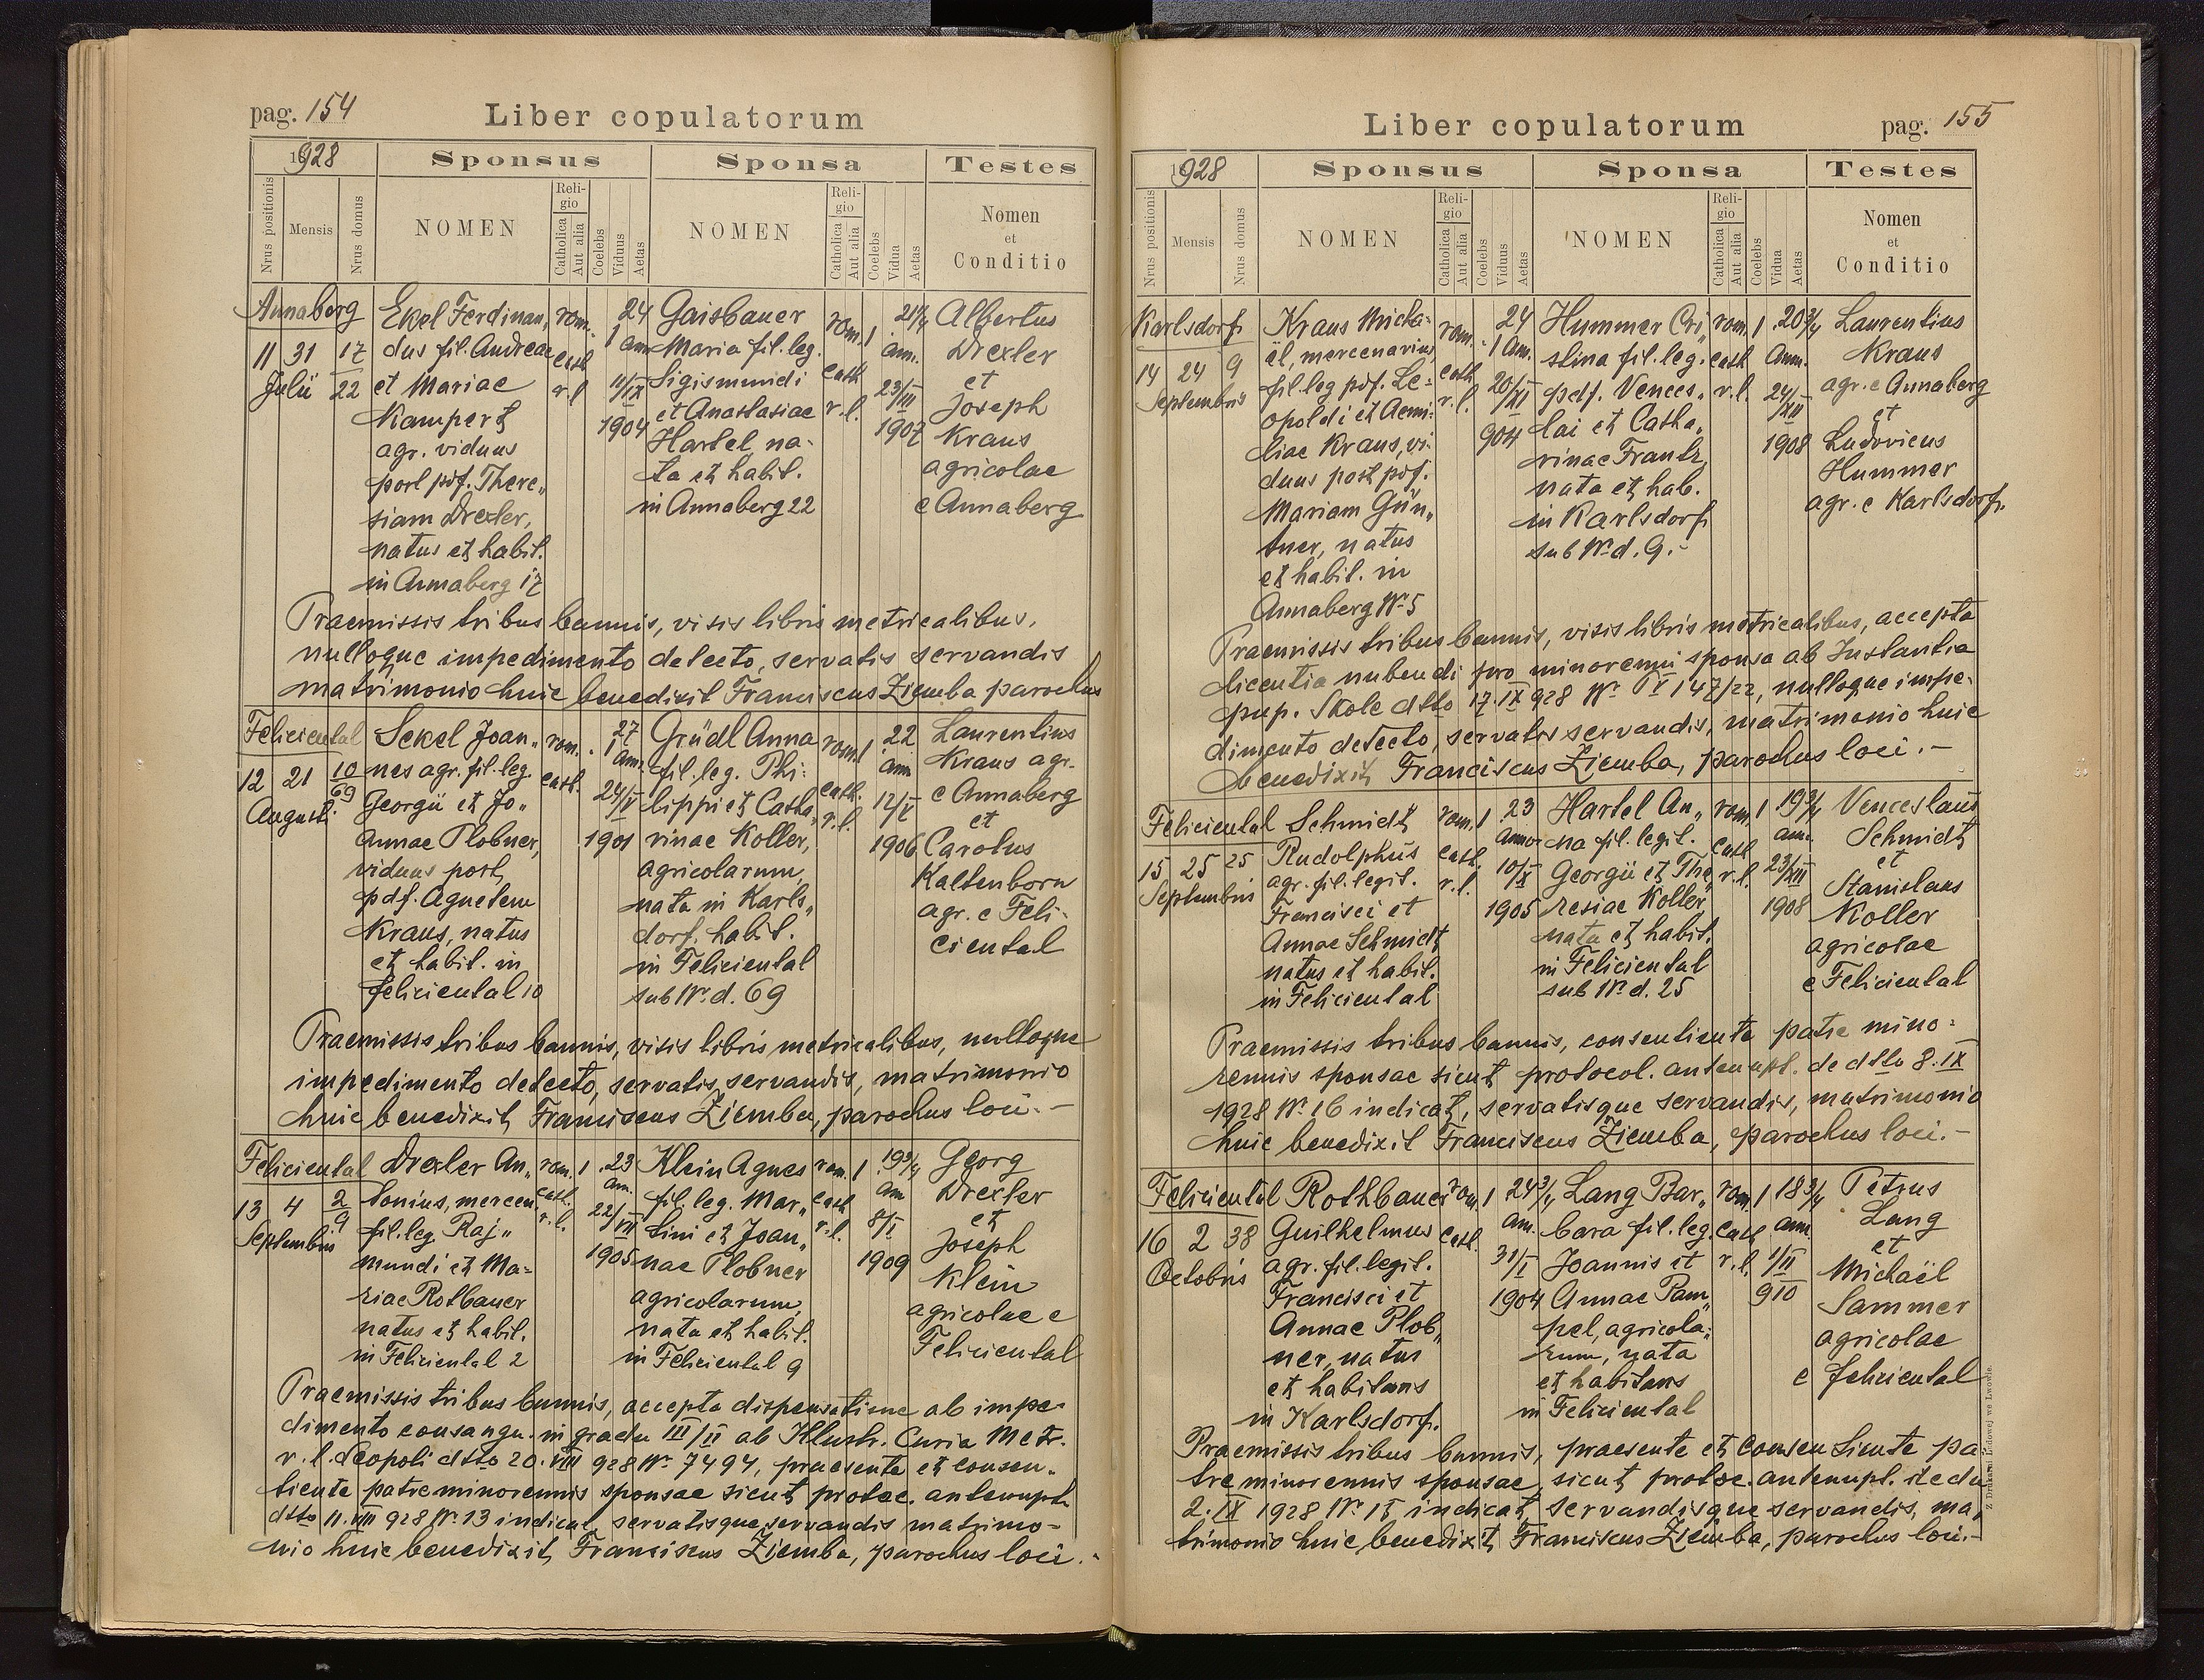 pag. 154
Liber copulatorum
1928
Sponsus
Sponsa
Testes
Nrus positionis
Mensis
Nrus domus
NOMEN
Religio
Catholica
Aut alia
Coelebs
Viduus
Aetas
NOMEN
Religio
Catholica
Aut alia
Coelebs
Vidua
Aetas
Nomen
et
Conditio
Annaberg
11 31 17
Julii 22
Ekel Ferdinan„
dus fil. Andreae
et Mariae
Kampert
agr. viduus
post pdf. There„
siam Drexler,
natus et habit.
in Annaberg 17
rom.
cath
r.l
24
1 ann
11/IX
1904
Gaisbauer
Maria fil. leg.
Sigismundi
et Anastasiae
Hartel, na-
ta et habit.
in Annaberg 22
rom. 1
cath
r.l.
21¼
ann.
23/III
1907
Albertus
Drexler
et
Joseph
Kraus
agricolae
e Annaberg
Praemissis tribus bannis, visis libris metricalibus,
nulloque impedimento detecto, servatis servandis
matrimonio huic benedixit Franciscus Ziemba parochus
Feliciental
12 21 10
69
Augusti
Sekel Joan„
nes agr. fil. leg.
Georgii et Jo„
annae Plobner,
viduus post
pdf. Agnetem
Kraus, natus
et habit. in
Feliciental 10
rom.
cath.
27
1
ann.
24/V
1901
Grüdl Anna
fil. leg. Phi:
lippi et Catha„
rinae Koller,
agricolarum,
nata in Karls„
dorf, habit.
in Feliciental
sub Nr. d. 69
rom 1
cath.
r.l.
22
ann
12/V
1906
Laurentius
Kraus agr.
e Annaberg
et
Carolus
Kaltenborn
agr. e Feli-
ciental
Praemissis tribus bannis, visis libris metricalibus, nulloque
impedimento detecto, servatis servandis, matrimonio
huic benedixit Franciscus Ziemba, parochus loci.-
Feliciental
13 4 2
9
Septembris
Drexler An„
tonius, mercen.
fil. leg Raj„
mundi et Ma=
riae Rotbauer
natus et habit.
in Feliciental 2
rom. 1
cath.
r.l.
23
ann.
22/VII
1905
Klein Agnes
fil. leg. Mar„
tini et Joan„
nae Plobner
agricolarum,
nata et habit.
in Feliciental 9
rom. 1
cath
r.l.
19¾
ann
8/I
1909
Georg
Drexler
et
Joseph
Klein
agricolae e
Feliciental
Praemissis tribus bannis, accepta dispensatione ab impe-
dimento consangu. in gradu III/II ab Illustr. Curia Metr.
r.l. Leopoli dtto 20.VIII 928 Nr. 7494, praesente et consen„
tiente patre minorennis sponsae sicut protoc. antenupt.
dtto 11.VIII 928 Nr. 13 indicat, servatisque servandis matrimo-
nio huic benedixit Franciscus Ziemba, parochus loci.-
Liber copulatorum
pag. 155
1928
Sponsus
Sponsa
Testes
Nrus positionis
Mensis
Nrus domus
NOMEN
Religio
Catholica
Aut alia
Coelebs
Viduus
Aetas
NOMEN
Religio
Catholica
Aut alia
Coelebs
Vidua
Aetas
Nomen
et
Conditio
Karlsdorf
14 24 9
Septembris
Kraus Micha-
ël, mercenarius
fil. leg pdf. Le=
opoldi et Aemi:
liae Kraus, vi:
duus post pdf.
Mariam Gün„
tner, natus
et habit. in
Annaberg Nr. 5
rom.
cath
r.l.
24
1 Ann.
20/XI
904
Hummer Cri„
stina fil. leg.
pdf. Vences„
lai et Catha„
rinae Frantz,
nata et hab.
in Karlsdorf
sub Nr. d. 9.-
rom. 1
cath
r.l.
20¾
Ann.
24/XII
1908
Laurentius
Kraus
agr. e Annaberg
et
Ludovicus
Hummer
agr. e Karlsdorf.
Praemissis tribus bannis, visis libris metricalibus, accepta
licentia nubendi pro minorenni sponsa ab Instantia
pup. Skole dtto 17.IX 928 Nr. 147/22, nulloque impe-
dimento detecto, servatis servandis, matrimonio huic
benedixit Franciscus Ziemba, parochus loci.-
Feliciental
15 25 25
Septembris
Schmidt
Rudolphus
agr. fil. legit.
Francisci et
Annae Schmidt
natus et habit.
in Feliciental
rom. 1
cath.
r.l.
23
Annor
10/X
1905
Hartel An„
na fil. legit.
Georgii et The„
resiae Koller
nata et habit.
in Feliciental
sub Nr. d. 25
rom 1
cath
r.l.
19¾
ann.
23/XII
1908
Venceslaus
Schmidt
et
Stanislaus
Koller
agricolae
e Feliciental
Praemissis tribus bannis, consentiente patre mino:
rennis sponsae sicut protocol. antenupt. de dtto 8.IX
1928 Nr. 16 indicat, servatisque servandis, matrimonio
huic benedixit Franciscus Ziemba, parochus loci.-
Feliciental
16 2 38
Octobris
Rothbauer
Guilhelmus
agr. fil. legit.
Francisci et
Annae Plob„
ner, natus
et habitans
in Karlsdorf.
rom. 1
cath.
24¾
ann.
31/I
1904
Lang Bar„
bara fil. leg.
Joannis et
Annae Pam„
pel, agricola:
rum, nata
et habitans
in Feliciental
rom 1
cath
r.l.
18¾
ann.
1/II
910
Petrus
Lang
et
Michaël
Sammer
agricolae
e Feliciental
Praemissis tribus bannis, praesente et consentiente pa
tre minorennis sponsae, sicut protoc. antenupt. de du
2.IX 1928 Nr. 15 indicat servandisque servandis, ma„
trimonio huic benedixit Franciscus Ziemba, parochus loci.-
Z Drukarni Ludowej we Lwowie.